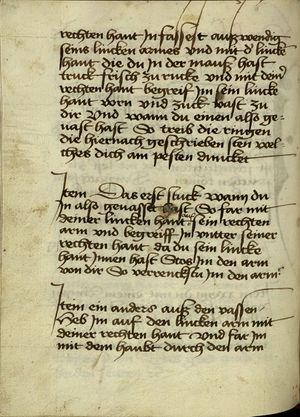 rechten hant In fassest auszwendig
seins lincken armes Und mit d' linck
hant die du in der mausz hast
truck frisch zu rucke und mit den
rechten hant begreif Im sein lincke
hant vorn und zuck vast zu
dir Und wann du einen also ge-
vast hast So treib die ringen
die hiernach geschrieben sten wel-
ches dich am pesten duncket
Item Das erst stuck wann du
In also gevasset hast So far mit
deiner lincken hant sein rechten
arm und begreiff In unter seiner
rechten hant da du sein lincke
hant Innen hast Stos Im den arm
von dir So verrenckstu im den arm
Item ein anders ausz den vassen
Heb Im auf den lincken arm mit
deiner rechten hant Und far Im
mit dem haubt durch den arm